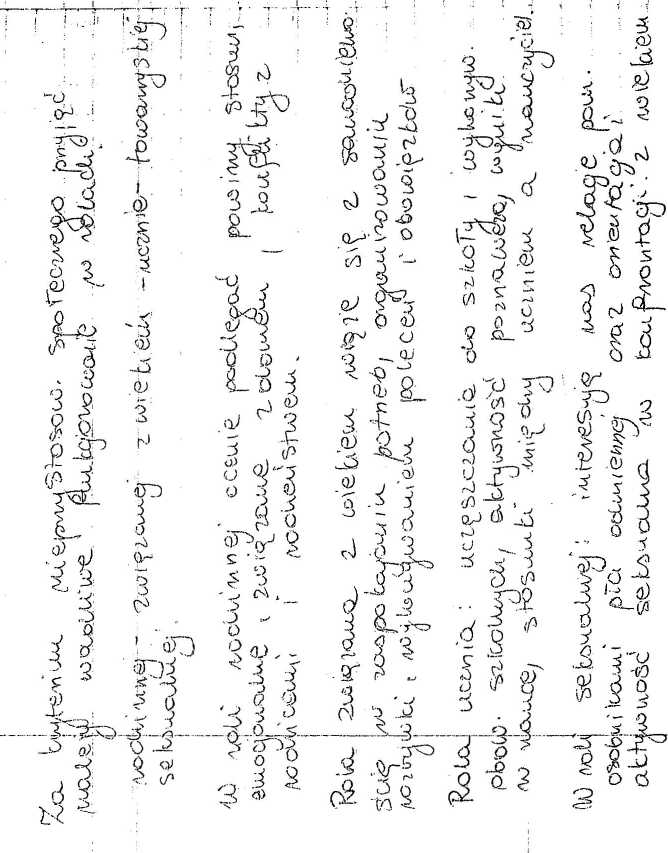 Za kryterium nieprzystosow. społecznego przyjąć
należy wadliwe funkcjonowanie w rolach:
rodzinnej - związanej z wiekiem - ucznia - towarzyskiej
seksualnej.
W roli rodzinnej ocenie podlegać powinny stosun.
emocjonalne, związane z domem, konflikty z
rodzicami i rodzeństwem.
Rola związana z wiekiem wiąże się z samodzielno.
ścią w zaspokajaniu potrzeb, organizowaniu
rozrywki, wykonywaniem poleceń i obowiązków
Rola ucznia: uczęszczanie do szkoły i wykonyw.
obow. szkolnych, aktywność poznawcza, wyniki
w nauce, stosunki między uczniem a nauczyciel.
W roli seksualnej: interesują nas relacje pom.
osobnikami płci odmiennej oraz orientacja i
aktywność seksualna w konfrontacji z wiekiem